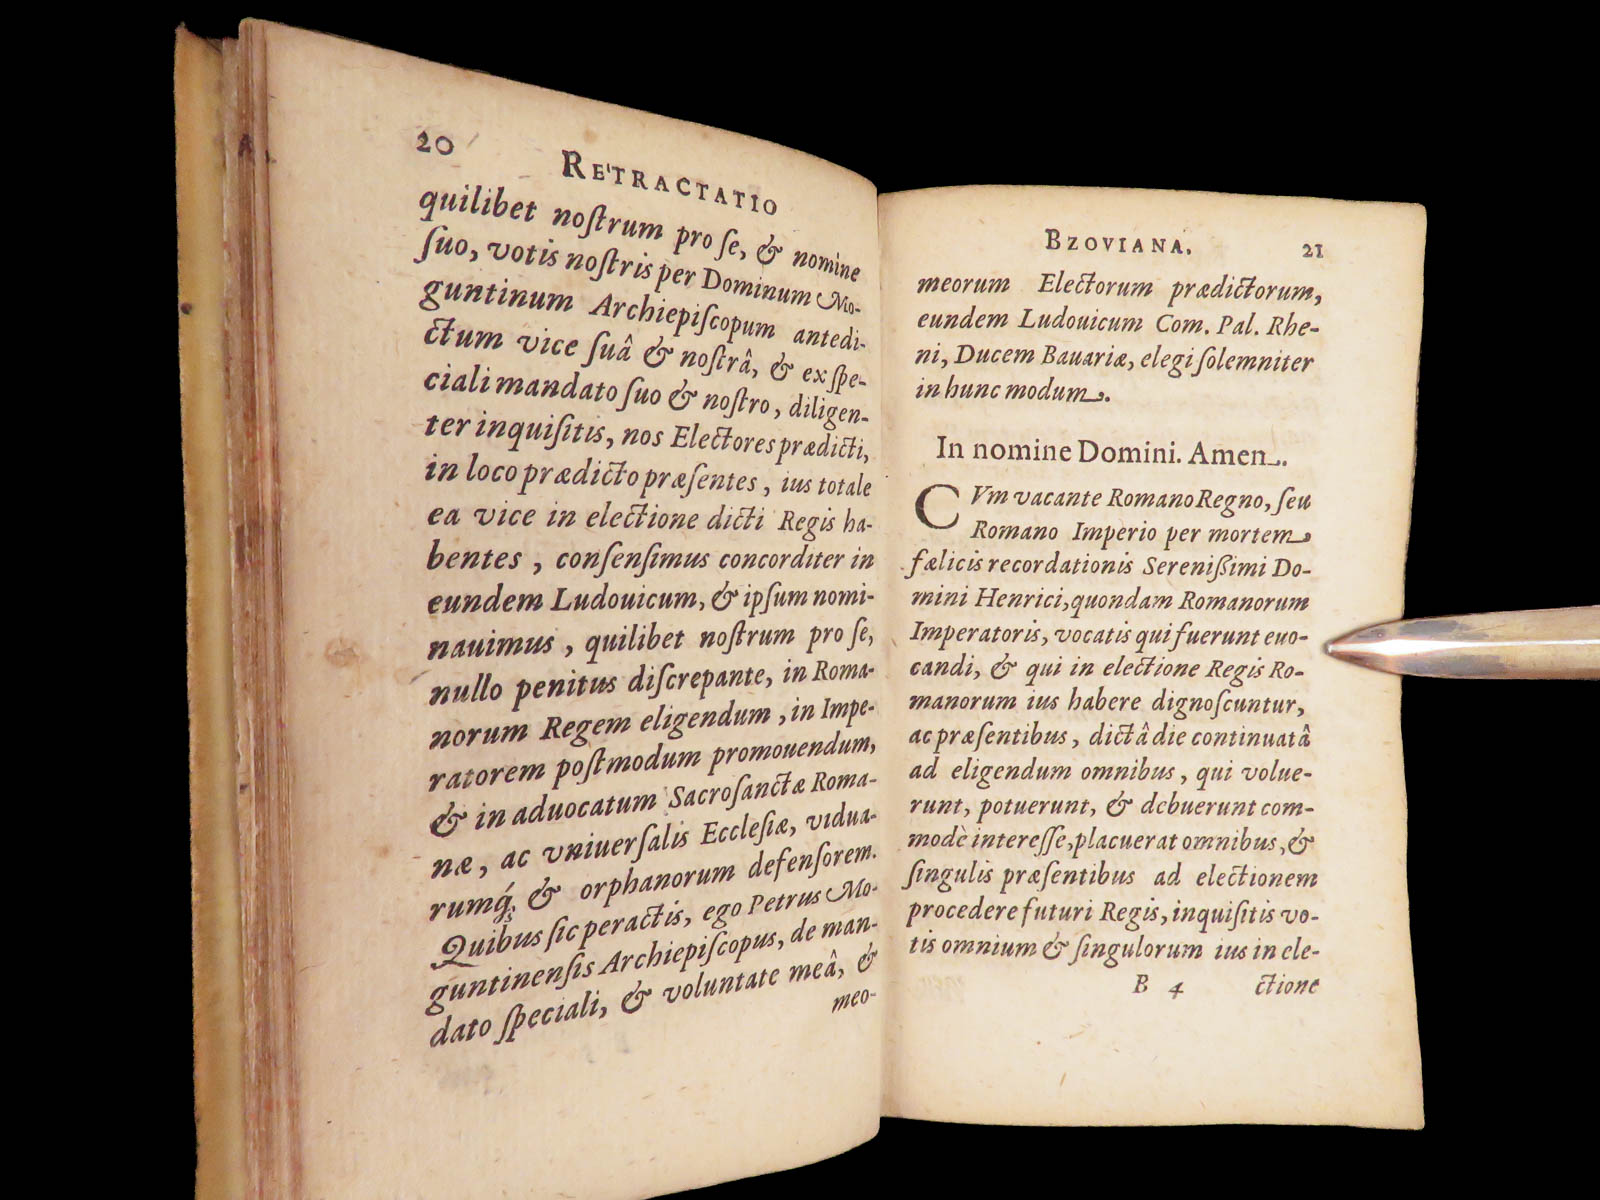 20
RETRACTATIO
quilibet noſtrum pro ſe, & nomine
ſuo, votis noſtris per Dominum Mo-
guntinum Archiepiſcopum antedi-
ctum vice ſuâ & noſtrâ, & ex ſpe-
ciali mandato ſuo & noſtro, diligen-
ter inquiſitis, nos Electores prædicti,
in loco prædicto præſentes, ius totale
ea vice in electione dicti Regis ha-
bentes, conſenſimus concorditer in
eundem Ludouicum, & ipſum nomi-
nauimus, quilibet noſtrum pro ſe,
nullo penitus diſcrepante, in Roma-
norum Regem eligendum, in Impe-
ratorem poſtmodum promouendum,
& in aduocatum Sacroſanctæ Roma-
næ, ac vniuerſalis Eccleſiæ, vidua-
rumq́; & orphanorum defenſorem.
Quibus ſic peractis, ego Petrus Mo-
guntinenſis Archiepiſcopus, de man-
dato ſpeciali, & voluntate meâ, &
meo-
BZOVIANA. 21
meorum Electorum prædictorum,
eundem Ludouicum Com. Pal. Rhe-
ni, Ducem Bauariæ, elegi ſolemniter
in hunc modum.
In nomine Domini. Amen.
CVm vacante Romano Regno, ſeu
Romano Imperio per mortem
fælicis recordationis Sereniſſimi Do-
mini Henrici, quondam Romanorum
Imperatoris, vocatis qui fuerunt euo-
candi, & qui in electione Regis Ro-
manorum ius habere dignoſcuntur,
ac præſentibus, dictâ die continuatâ
ad eligendum omnibus, qui volue-
runt, potuerunt, & debuerunt com-
modè intereſſe, placuerat omnibus, &
ſingulis præſentibus ad electionem
procedere futuri Regis, inquiſitis vo-
tis omnium & ſingulorum ius in ele-
B 4 ctione